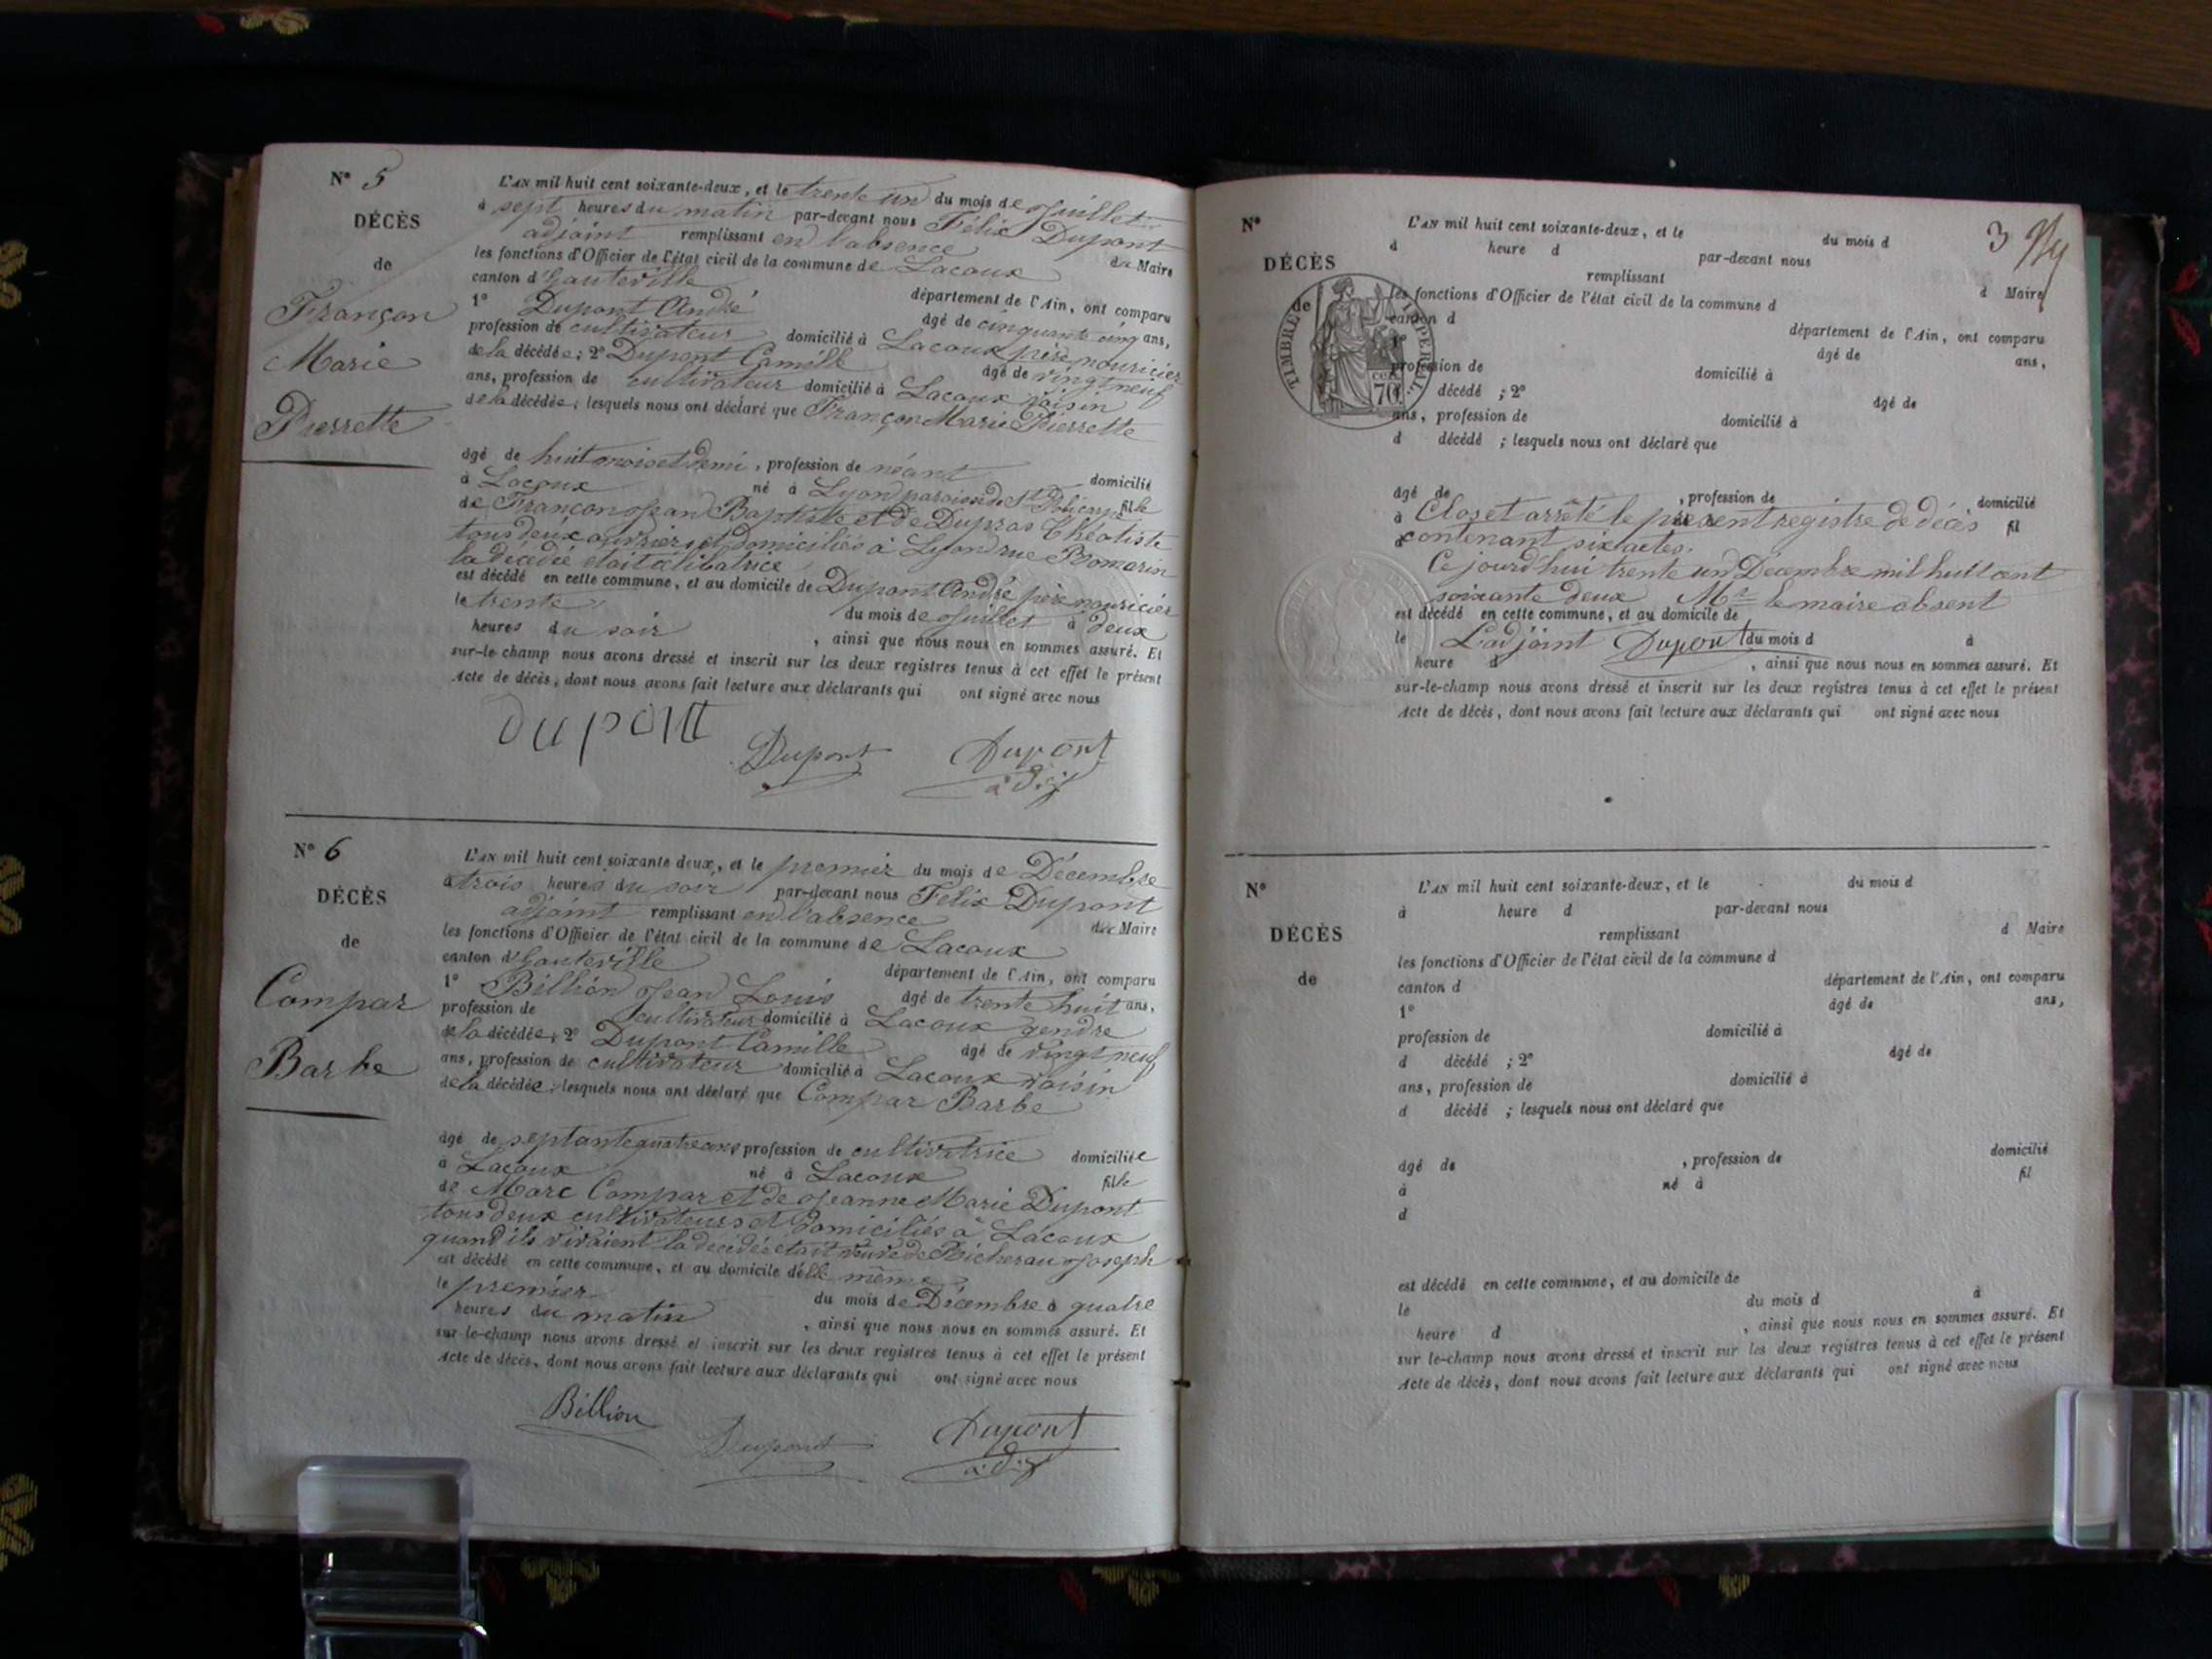 N° 5
DÉCÈS
de
Françon
Marie
Pierrette
L'AN mil huit cent soixante-deux, et le trente un du mois de Juillet
à sept heures du matin par-devant nous Félix Dupont
adjoint remplissant en l'absence du Maire
les fonctions d'Officier de l'état civil de la commune de Lacoux
canton d'hauteville département de l'Ain, ont comparu
1° Dupont André âgé de cinquante cinq ans,
profession de cultivateur domicilié à Lacoux père nouricier
de la décédée ; 2° Dupont Camille âgé de vingt neuf
ans, profession de cultivateur domicilié à Lacoux voisin
de la décédée ; lesquels nous ont déclaré que Françon Marie Pierrette
âgé de huit mois et demi, profession de néant domicilié
à Lacoux né à Lyon paroisse de St Policarpe fille
de Françon Jean Baptiste et de Dupras Théotiste
tous deux ouvriers et domiciliés à Lyon rue Romarin
la décédée était célibatrice
est décédé en cette commune, et au domicile de Dupont André père nouricier
le trente du mois de Juillet à deux
heures du soir , ainsi que nous nous en sommes assuré. Et
sur-le-champ nous avons dressé et inscrit sur les deux registres tenus à cet effet le présent
Acte de décès, dont nous avons fait lecture aux déclarants qui ont signé avec nous
dupont Dupont Dupont
adj
N° 6
DÉCÈS
de
Compar
Barbe
L'AN mil huit cent soixante deux, et le premier du mois de Décembre
à trois heures du soir par-devant nous Félix Dupont
adjoint remplissant en l'absence du Maire
les fonctions d'Officier de l'état civil de la commune de Lacoux
canton d'hauteville département de l'Ain, ont comparu
1° Billion Jean Louis âgé de trente huit ans,
profession de cultivateur domicilié à Lacoux gendre
de la décédée ; 2° Dupont Camille âgé de vingt neuf
ans, profession de cultivateur domicilié à Lacoux voisin
de la décédée ; lesquels nous ont déclaré que Compar Barbe
âgé de septante quatre ans profession de cultivatrice domiciliée
à Lacoux né à Lacoux fille
de Marc Compar et de Jeanne Marie Dupont
tous deux cultivateurs et domiciliés à Lacoux
quand ils vivaient la décédée était veuve de Richerau Joseph
est décédé en cette commune, et au domicile d'elle même
le premier du mois de Décembre à quatre
heures du matin , ainsi que nous nous en sommes assuré. Et
sur-le-champ nous avons dressé et inscrit sur les deux registres tenus à cet effet le présent
Acte de décès, dont nous avons fait lecture aux déclarants qui ont signé avec nous
Billion Dupont Dupont
adj
3
N°
DÉCÈS
de
TIMBRE IMPÉRIAL
70 cen
L'AN mil huit cent soixante-deux, et le du mois d
à heure d par-devant nous
remplissant d Maire
les fonctions d'Officier de l'état civil de la commune d
canton d département de l'Ain, ont comparu
1° âgé de ans,
profession de domicilié à
d décédé ; 2° âgé de
ans, profession de domicilié à
d décédé ; lesquels nous ont déclaré que
âgé de , profession de domicilié
à Clos et arrêté le présent registre de décès fil
d contenant six actes.
Ce jourd'hui trente un Décembre mil huit cent
soixante deux Mr le maire absent
est décédé en cette commune, et au domicile de
le L'adjoint Dupont du mois d à
heure d , ainsi que nous nous en sommes assuré. Et
sur-le-champ nous avons dressé et inscrit sur les deux registres tenus à cet effet le présent
Acte de décès, dont nous avons fait lecture aux déclarants qui ont signé avec nous
N°
DÉCÈS
de
L'AN mil huit cent soixante-deux, et le du mois d
à heure d par-devant nous
remplissant d Maire
les fonctions d'Officier de l'état civil de la commune d
canton d département de l'Ain, ont comparu
1° âgé de ans,
profession de domicilié à
d décédé ; 2° âgé de
ans, profession de domicilié à
d décédé ; lesquels nous ont déclaré que
âgé de , profession de domicilié
à né à fil
d
est décédé en cette commune, et au domicile de
le du mois d à
heure d , ainsi que nous nous en sommes assuré. Et
sur-le-champ nous avons dressé et inscrit sur les deux registres tenus à cet effet le présent
Acte de décès, dont nous avons fait lecture aux déclarants qui ont signé avec nous